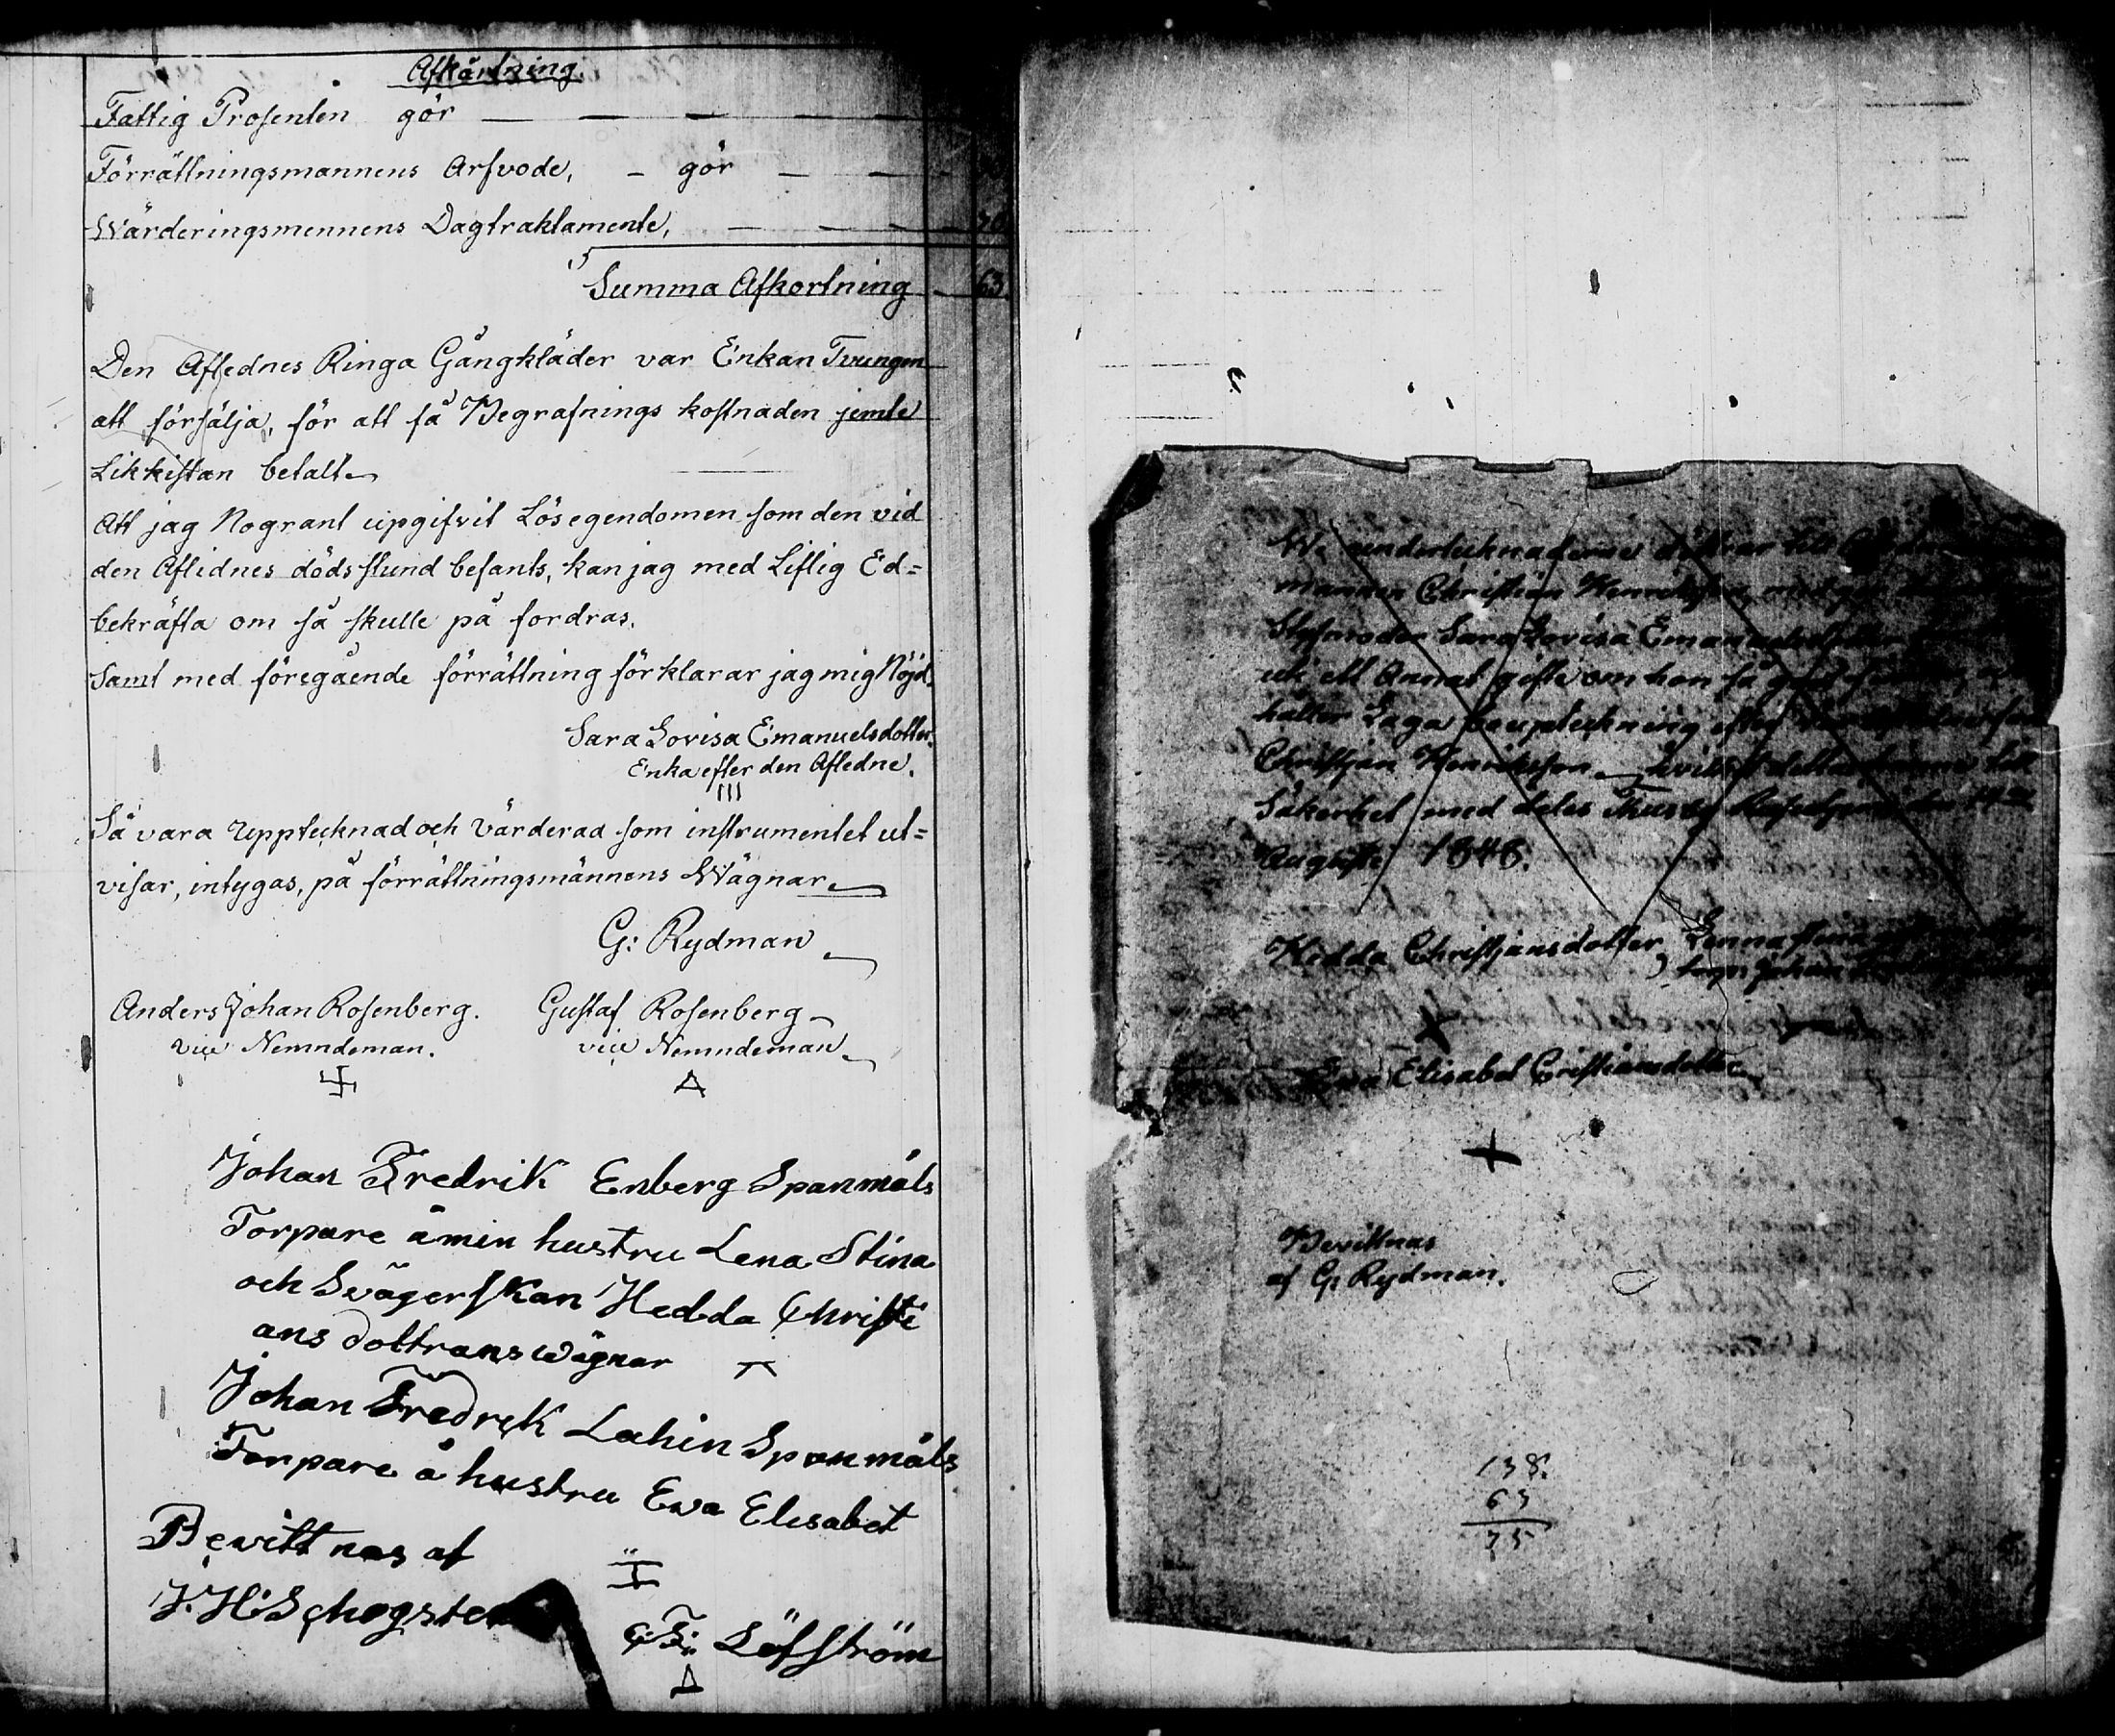 Afkårtning.
Fattig Prosenten gör — — — — —
Förrättningsmannens Arfvode, – gör – —
Wärderingsmennens Dagtraktamente, — — — — 20
Summa Afkortning – 63.
Den Aflednes Ringa Gångkläder var Enkan Tvungen
att försälja, för att få Begrafnings kostnaden jemte
Likkistan betalt
Att jag Nogrant upgifvit Lösegendomen som den vid
den Aflidnes dödsstund befants, kan jag med Liflig Ed=
bekräfta om så skulle på fordras.
Samt med föregående förrättning förklarar jag mig Nöjd.
Sara Lovisa Emanuelsdotter.
Enka efter den Afledne.
Så vara Upptecknad och Värderad som instrumentet ut=
visar, intygas, på förrättningsmännens Wägnar
G: Rydman
Anders Johan Rosenberg. Gustaf Rosenberg
vice Nemndeman. vice Nemndeman
Johan Fredrik Enberg Spanmåls
Torpare å min hustru Lena Stina
och Svägerskan Hedda Christi
ans dottrans wägnar
Johan Fredrek Lahin Spanmåls
Torpare å hustru Ewa Elisabet
Bevittnas af
J. H: Schogster
Löfström
Wi undertecknaderne döttrar till
mannen Christian Henriksson, medgif
Styfmoder Sara Lovisa Emanuelsdotter
uti ett Annat gifte om hon så
håller Laga bouptekning efter
Christjan Henriksson hvilket detta till
Säkerhet med deles den 14de
Augusti 1848.
Hedda Christjansdotter, Lenna Stina
Johan
Ewa Elisabet Cristiansdotter
Bevittnas
af G: Rydman.
138.
63
75